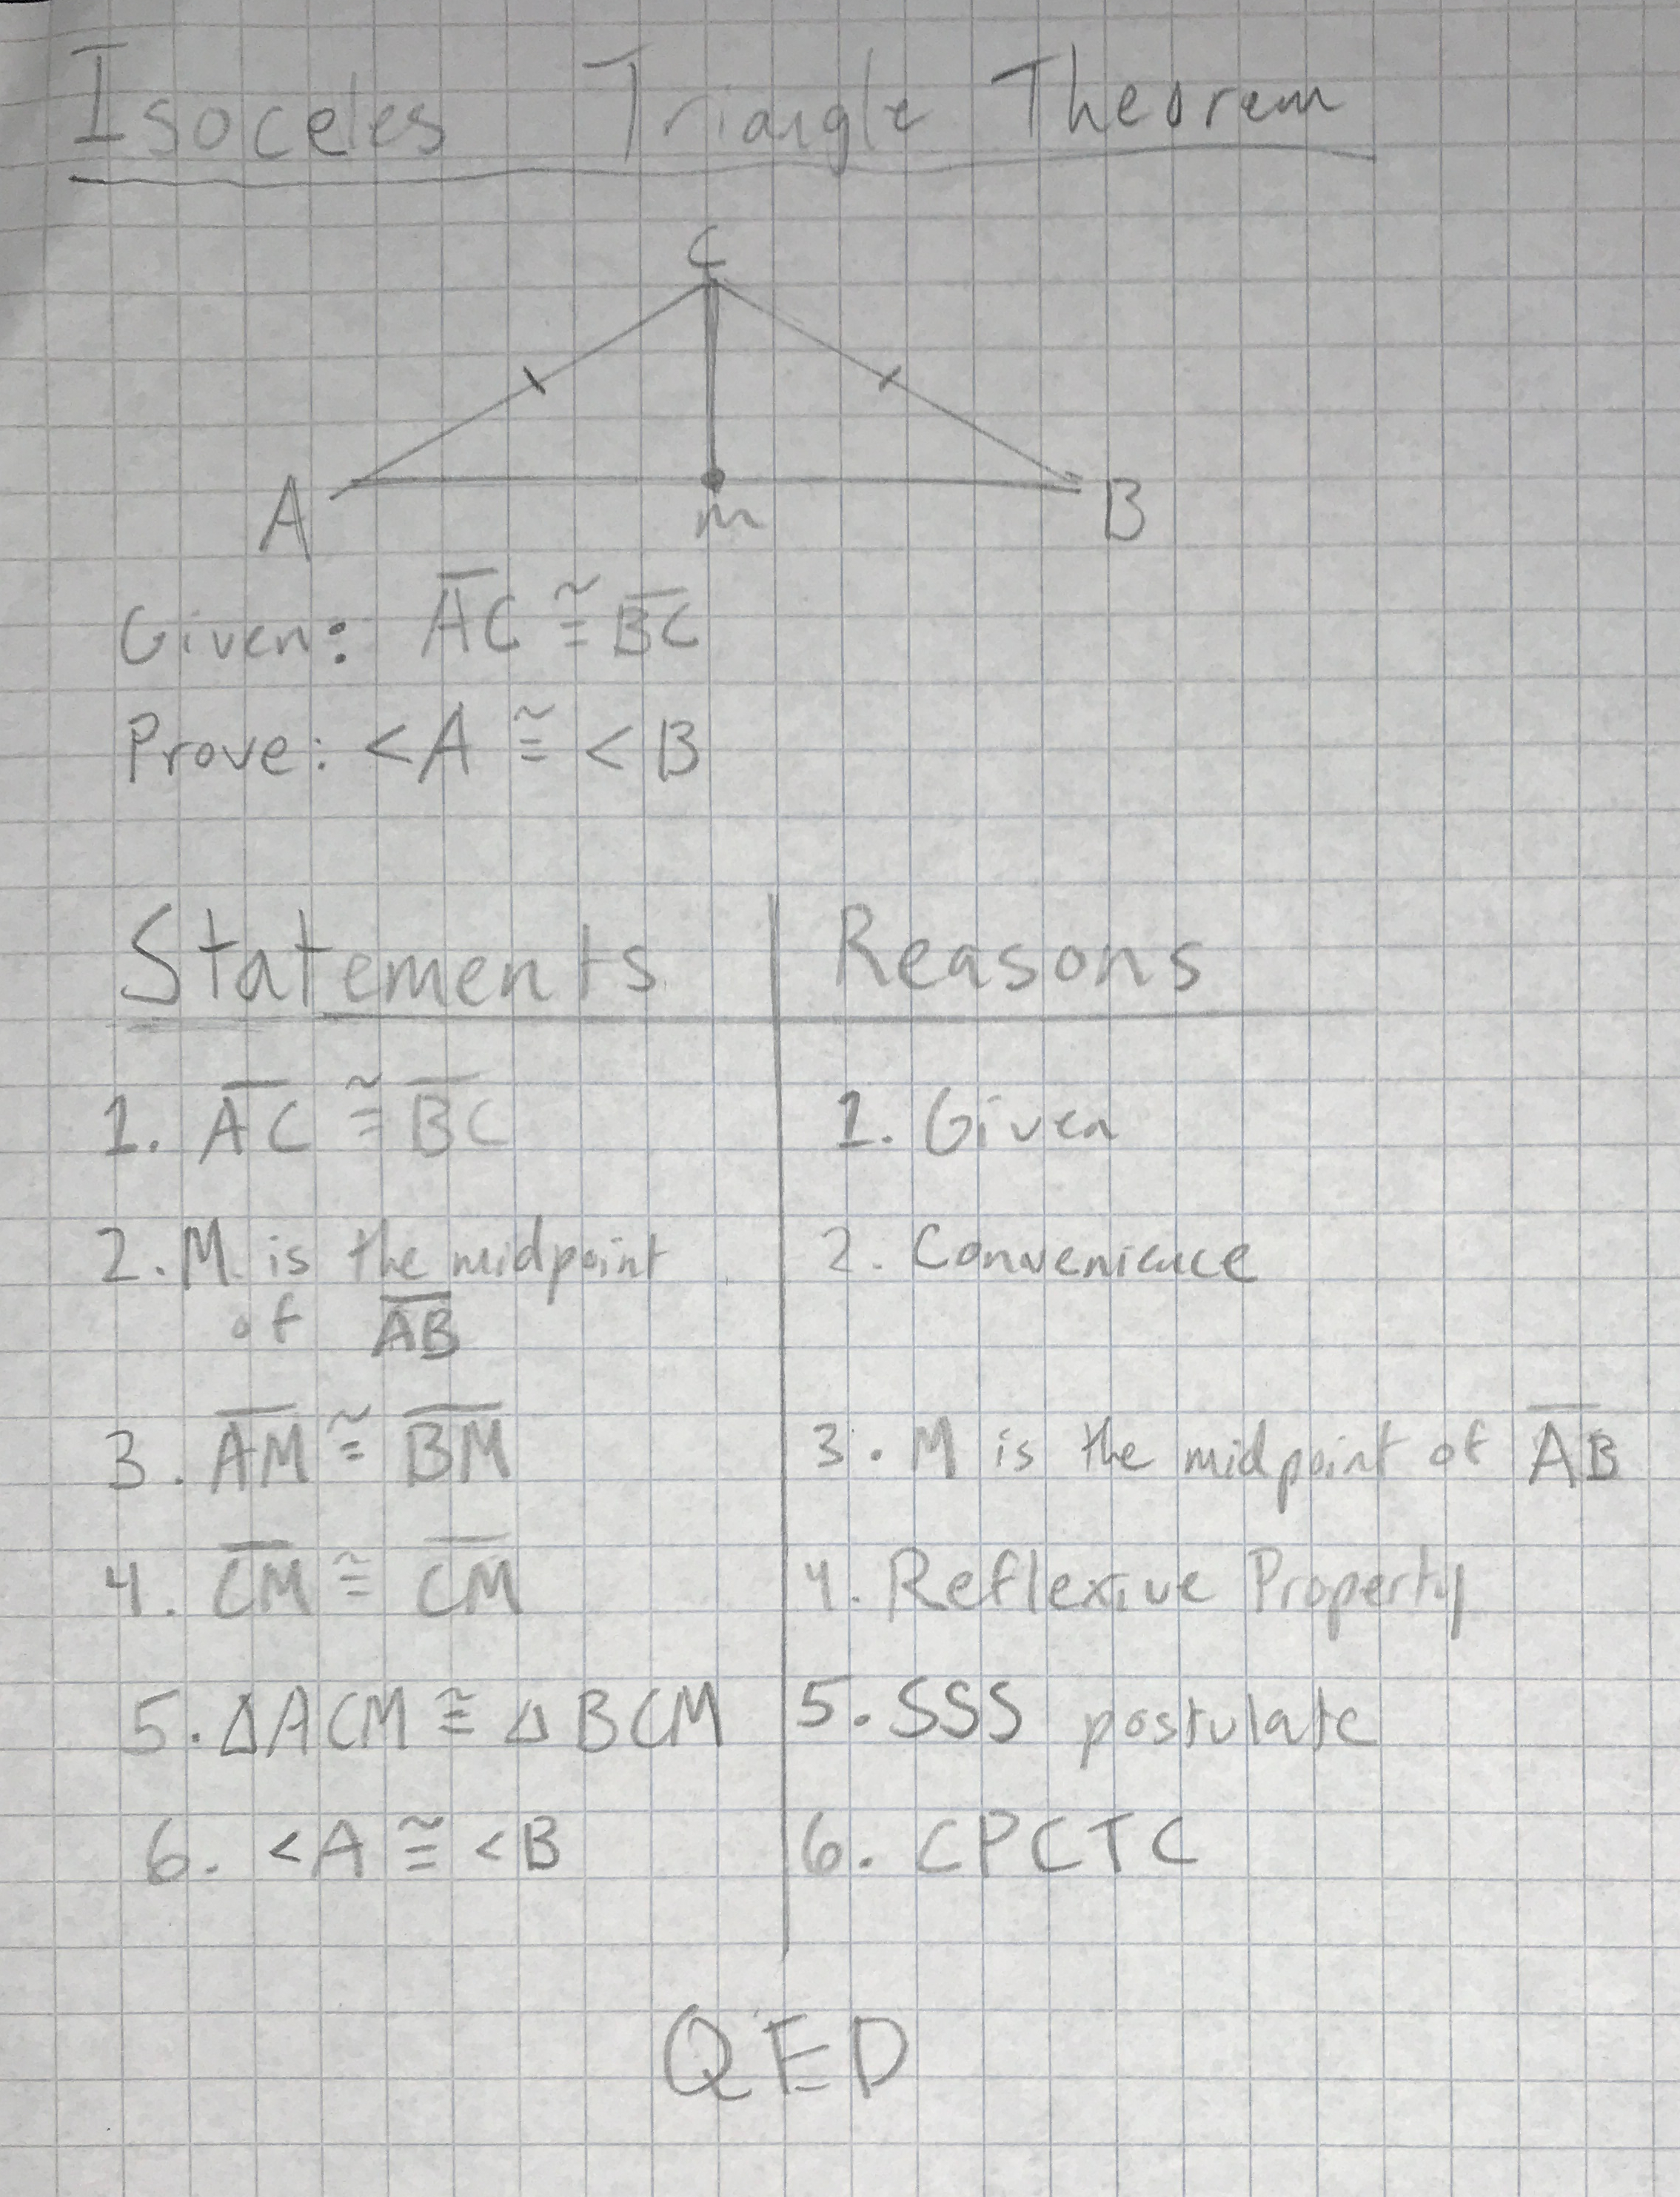 Isoceles Triangle Theorem
C
A
M
B
Given: A̅C̅ ≅ B̅C̅
Prove: <A ≅ <B
Statements
Reasons
1. A̅C̅ ≅ B̅C̅
1. Given
2. M is the midpoint
of A̅B̅
2. Convenience
3. A̅M̅ ≅ B̅M̅
3. M is the midpoint of A̅B̅
4. C̅M̅ ≅ C̅M̅
4. Reflexive Property
5. ΔACM ≅ ΔBCM
5. SSS postulate
6. <A ≅ <B
6. CPCTC
QED